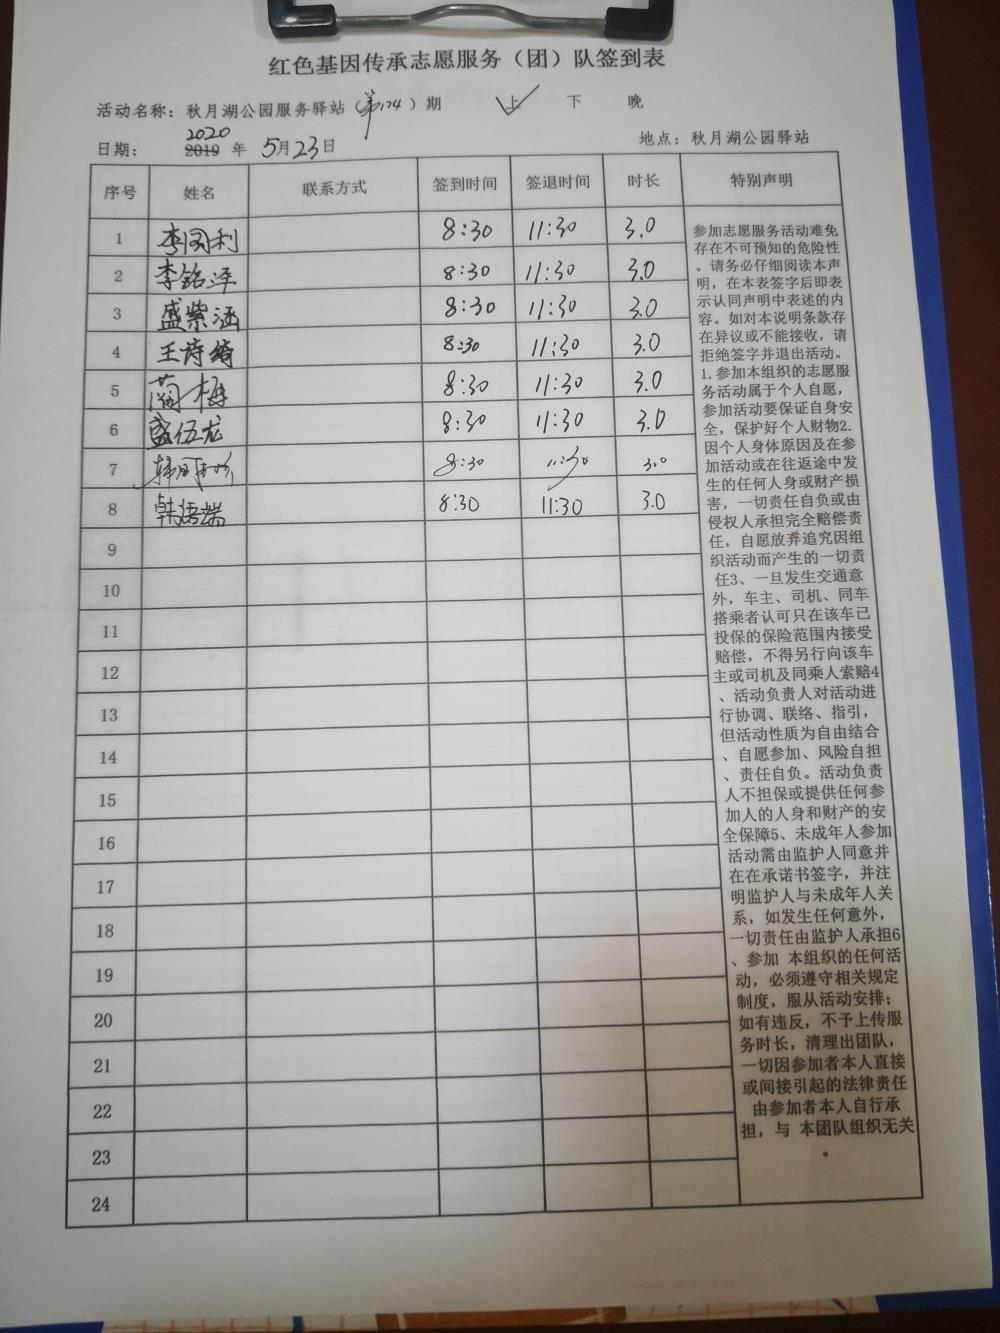 红色基因传承志愿服务（团）队签到表
活动名称：秋月湖公园服务驿站（第124）期 上 下 晚
2020
日期： 2019 年 5月23日 地点：秋月湖公园驿站
序号 姓名 联系方式 签到时间 签退时间 时长 特别声明
1 李国利 8:30 11:30 3.0
2 李铭洋 8:30 11:30 3.0
3 盛紫涵 8:30 11:30 3.0
4 王诗绮 8:30 11:30 3.0
5 梅 8:30 11:30 3.0
6 盛伍龙 8:30 11:30 3.0
7 8:30 11:30 3.0
8 韩语端 8:30 11:30 3.0
9
10
11
12
13
14
15
16
17
18
19
20
21
22
23
24
参加志愿服务活动难免
存在不可预知的危险性
。请务必仔细阅读本声
明，在本表签字后即表
示认同声明中表述的内
容。如对本说明条款存
在异议或不能接收，请
拒绝签字并退出活动。
1.参加本组织的志愿服
务活动属于个人自愿，
参加活动要保证自身安
全，保护好个人财物2.
因个人身体原因及在参
加活动或在往返途中发
生的任何人身或财产损
害，一切责任自负或由
侵权人承担完全赔偿责
任，自愿放弃追究因组
织活动而产生的一切责
任3、一旦发生交通意
外，车主、司机、同车
搭乘者认可只在该车已
投保的保险范围内接受
赔偿，不得另行向该车
主或司机及同乘人索赔4
、活动负责人对活动进
行协调、联络、指引，
但活动性质为自由结合
、自愿参加、风险自担
、责任自负。活动负责
人不担保或提供任何参
加人的人身和财产的安
全保障5、未成年人参加
活动需由监护人同意并
在在承诺书签字，并注
明监护人与未成年人关
系，如发生任何意外，
一切责任由监护人承担6
、参加 本组织的任何活
动，必须遵守相关规定
制度，服从活动安排；
如有违反，不予上传服
务时长，清理出团队，
一切因参加者本人直接
或间接引起的法律责任
由参加者本人自行承
担，与 本团队组织无关
。